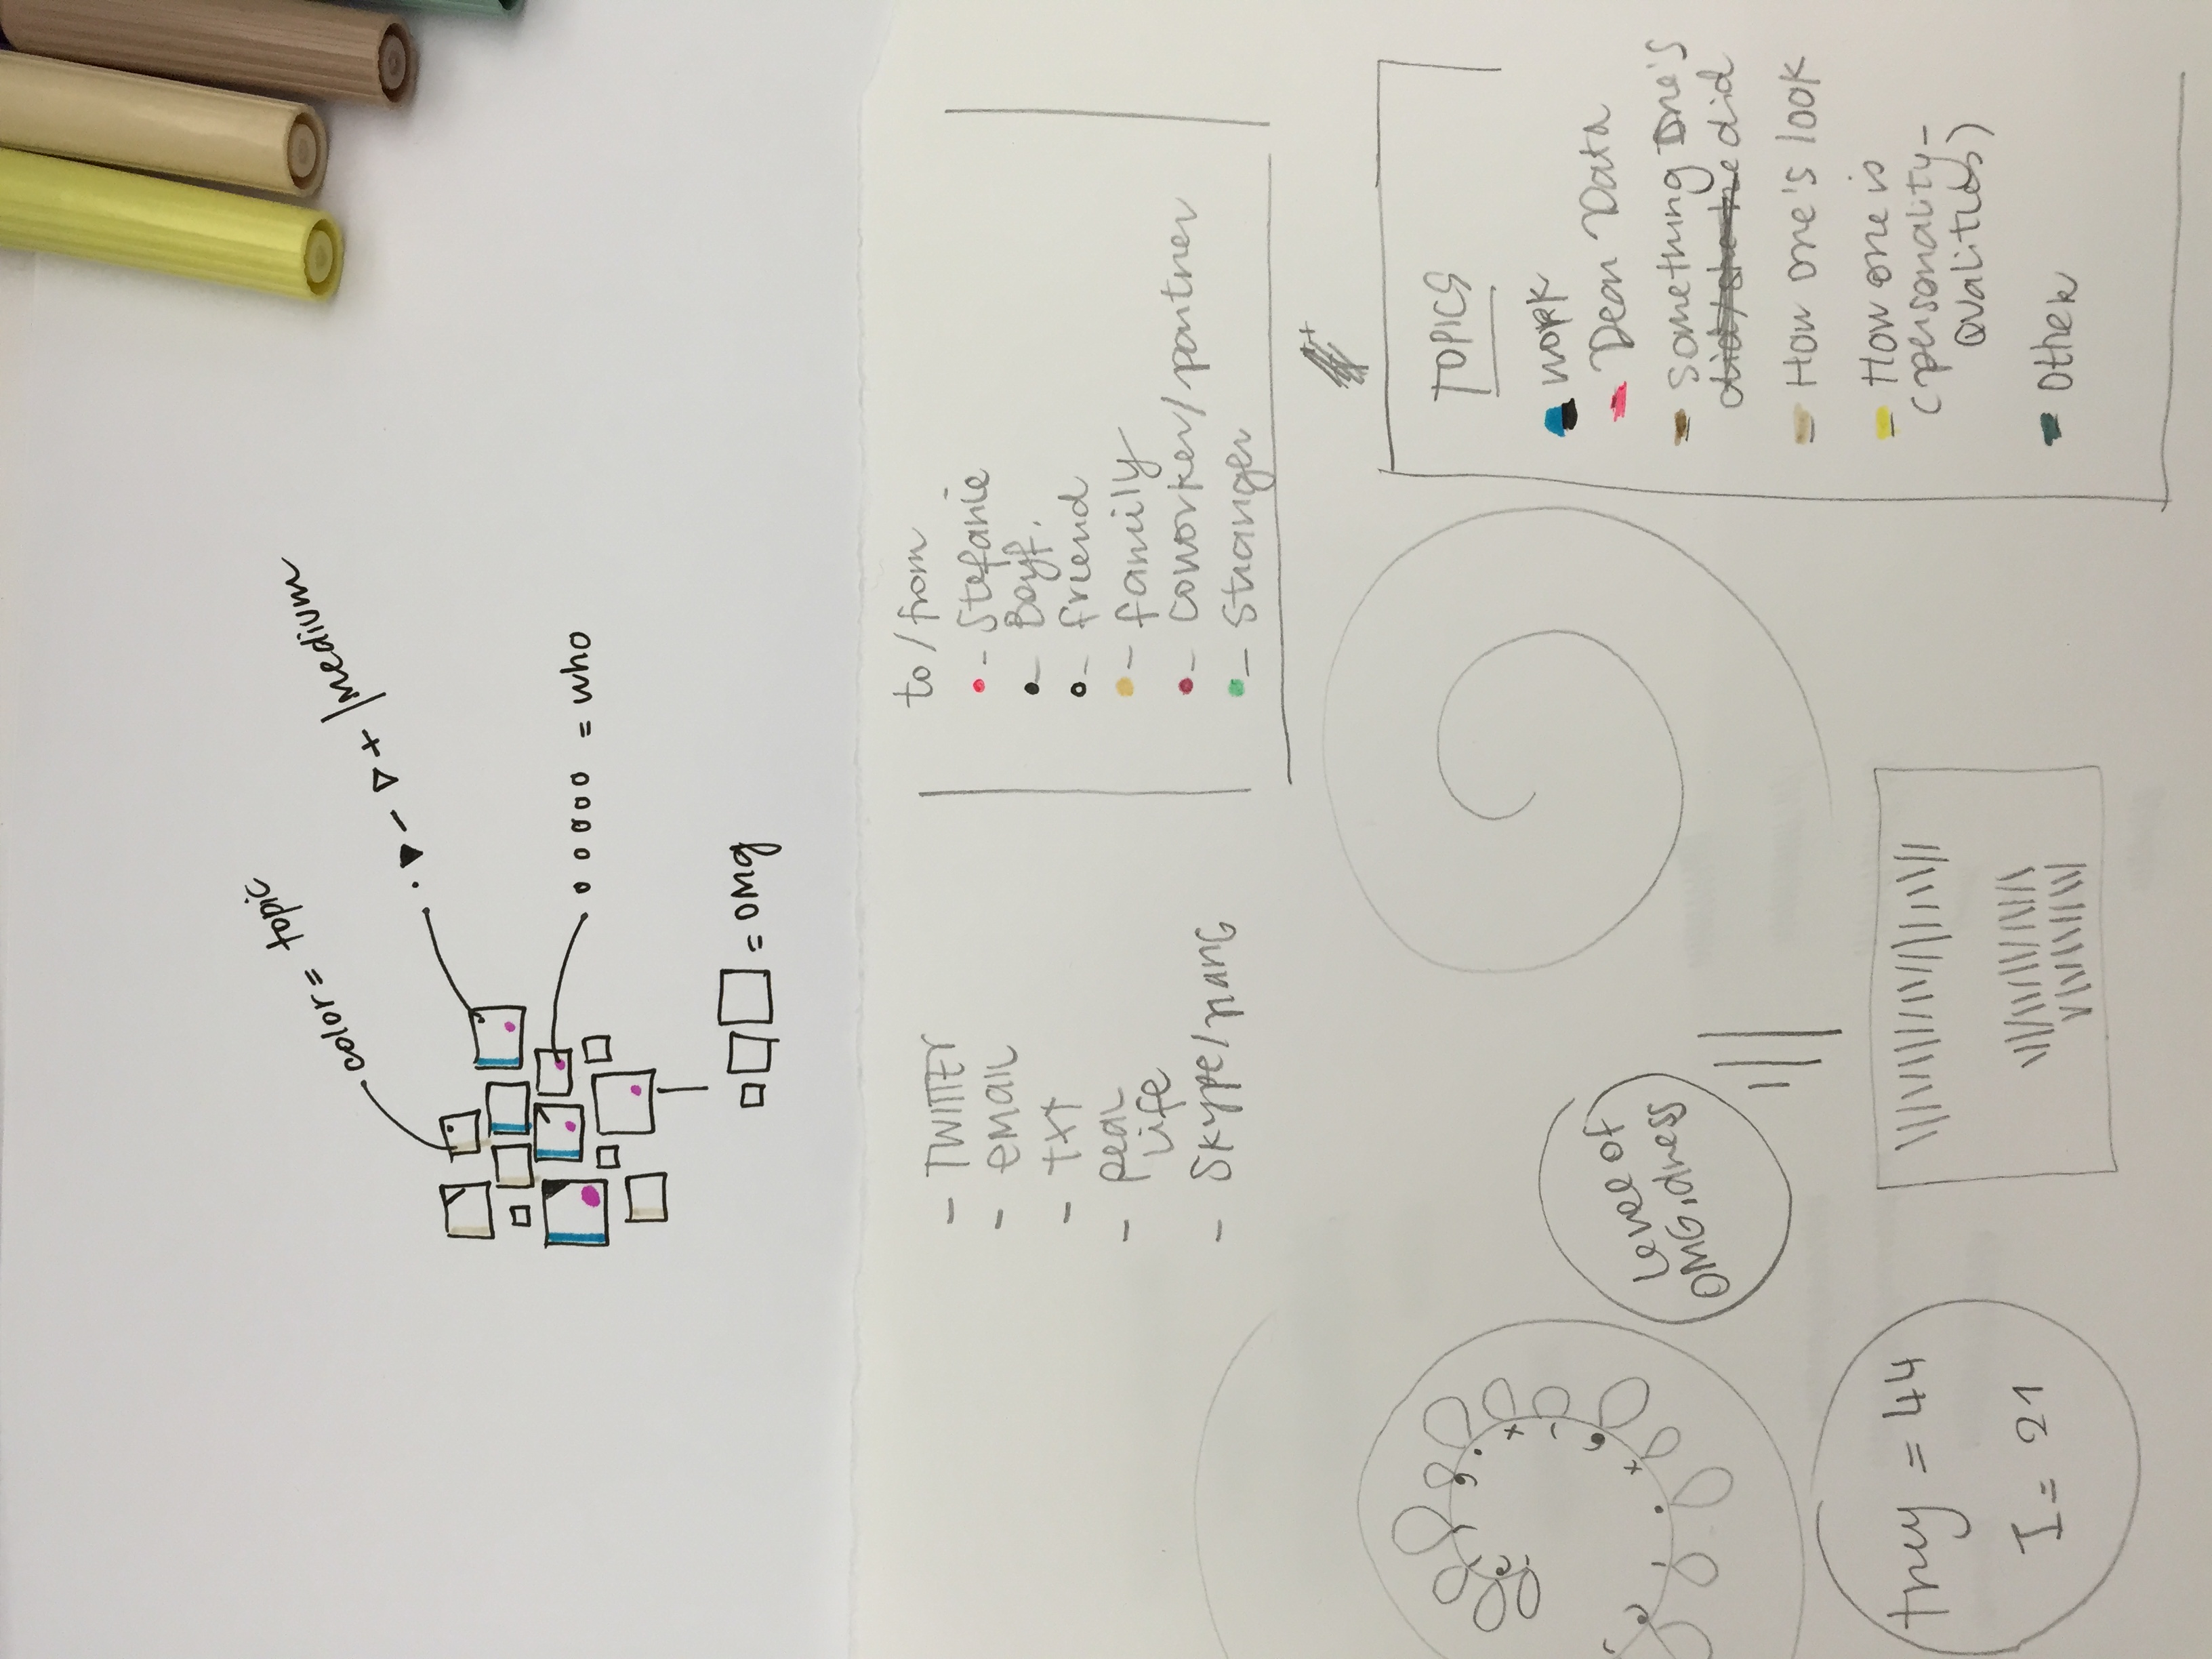 color = topic
medium
= who
= omg
- TWITTER
- email
- txt
- real
life
- Skype/hang
to/from
- Stefanie
- Boyf.
- friend
- family
- coworker/partner
- Stranger
Level of
OMGidness
they = 44
I = 21
TOPICS
work
- Dear Data
- Something One's
did
- How one's look
- How one is
(personality-
qualities)
- Other